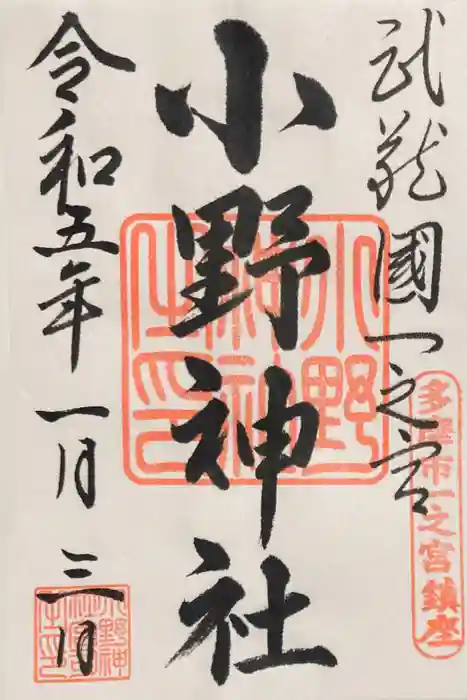 武蔵國一之宮
多摩市一之宮鎮座
小野神社
小野
神社
之印
令和五年一月三日
小野神
社宮司
之印